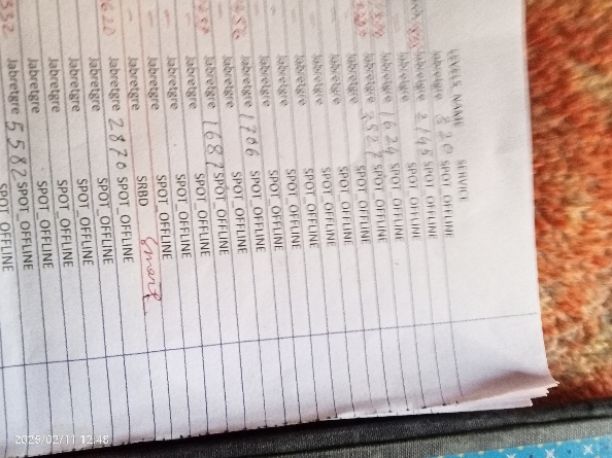 LEVELS_NAME SERVICE
Jabretgre 320 SPOT_OFFLINE
Jabretgre 2145 SPOT_OFFLINE
Jabretgre SPOT_OFFLINE
Jabretgre 1624 SPOT_OFFLINE
Jabretgre 3527 SPOT_OFFLINE
Jabretgre SPOT_OFFLINE
Jabretgre SPOT_OFFLINE
Jabretgre SPOT_OFFLINE
Jabretgre SPOT_OFFLINE
Jabretgre SPOT_OFFLINE
Jabretgre SPOT_OFFLINE
Jabretgre 1706 SPOT_OFFLINE
Jabretgre SPOT_OFFLINE
Jabretgre 1687 SPOT_OFFLINE
Jabretgre SPOT_OFFLINE
Jabretgre SPOT_OFFLINE
Jabretgre SPOT_OFFLINE
Jabretgre SRBD Smart
Jabretgre 2870 SPOT_OFFLINE
Jabretgre SPOT_OFFLINE
Jabretgre SPOT_OFFLINE
Jabretgre SPOT_OFFLINE
Jabretgre SPOT_OFFLINE
Jabretgre 5582 SPOT_OFFLINE
SPOT_OFFLINE
2025/02/11 12:48